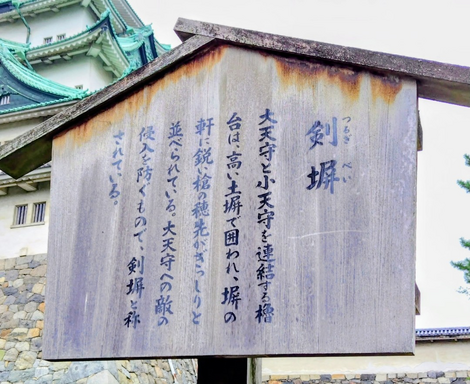 つるぎ べい
剣塀
大天守と小天守を連結する櫓
台は、高い土塀で囲われ、塀の
軒に鋭い槍の穂先がぎっしりと
並べられている。大天守への敵の
侵入を防ぐもので、剣塀と称
されている。